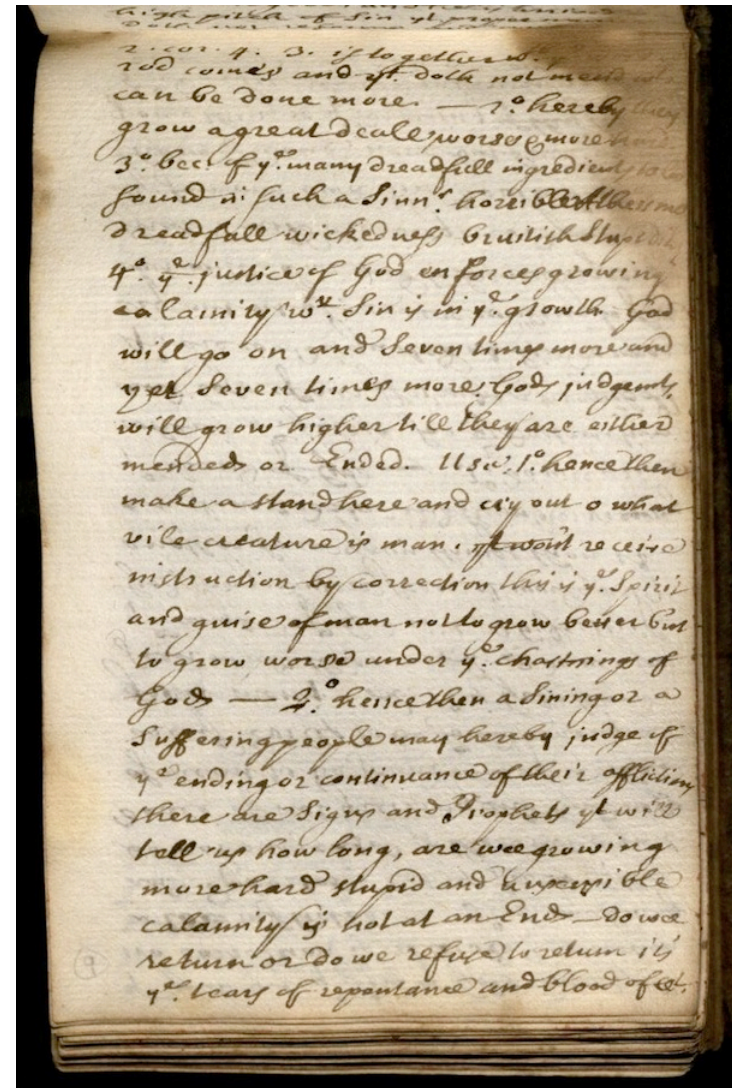 high pitch of Sin yt
2. cor. 4. 3. is together wt.
rod comes and yt. doth not mend
can be done more. — 2º hereby they
grow a great deall worse & more hard
3º bec: of ye. many dreadfull ingredients to be
found in such a Sinnr. horrible Atheisme
dreadfull wickedness bruitish Stupidity
4º. ye. justice of God enforces growing
calamity wn. Sin is in ye. growth. God
will go on and Seven times more and
yet Seven times more. Gods judgemts.
will grow higher till they are either
mended or Ended. Use. 1º. hence then
make a stand here and cry out o what
vile creature is man. yt wont receive
instruction by correction this is ye. Spirit
and guise of man not to grow better but
to grow worse under ye. chastnings of
God — 2º. hence then a Sining or a
Suffering people may hereby judge of
ye ending or continuance of their afflictions
there are Signs and Prophets yt will
tell us how long, are wee growing
more hard stupid and unsensible
calamity is not at an End — do wee
return or do we refuse to return its
ye. tears of repentance and blood of